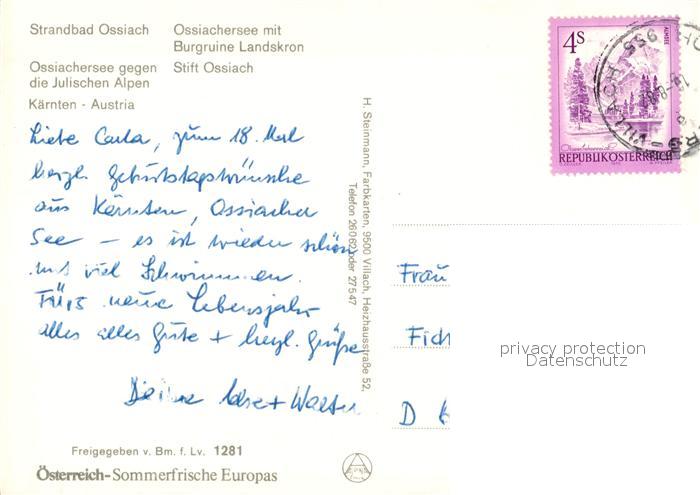 Strandbad Ossiach
Ossiachersee mit
Burgruine Landskron
Ossiachersee gegen
die Julischen Alpen
Stift Ossiach
Kärnten - Austria
Liebe Carla, zum 18. Mal
herzl. Geburtstagswünsche
aus Kärnten, Ossiacher
See – es ist wieder schön
mit viel Schwimmen.
Fürs neue Lebensjahr
alles alles Gute + herzl. Grüße
Deine + Walter
H. Steinmann, Farbkarten, 9500 Villach, Heizhausstraße 52,
Telefon 26062 oder 27547
4 S
ALMSEE
REPUBLIK ÖSTERREICH
VILLACH
Frau
Fich
D
privacy protection
Datenschutz
Freigegeben v. Bm. f. Lv. 1281
Österreich-Sommerfrische Europas